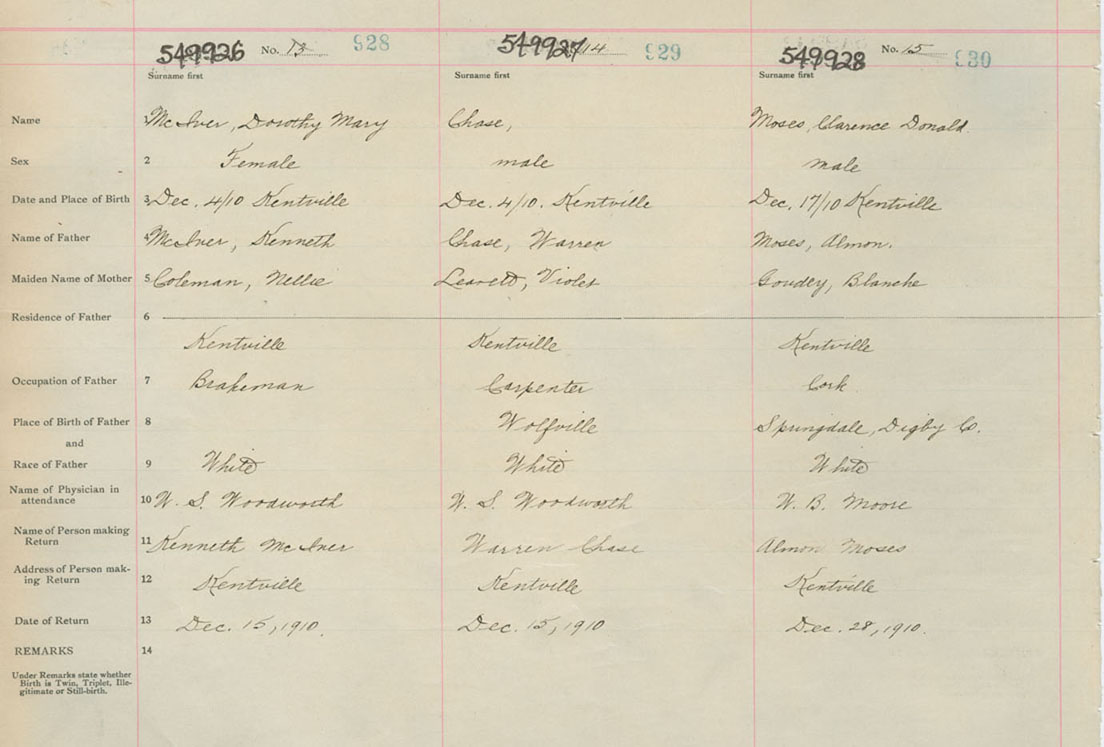 549926 No. 13 928 549927 14 929 549928 No. 15 930
Surname first Surname first Surname first
Name 1 McIver, Dorothy Mary Chase, Moses, Clarence Donald
Sex 2 Female male male
Date and Place of Birth 3 Dec. 4/10 Kentville Dec. 4/10. Kentville Dec. 17/10 Kentville
Name of Father 4 McIver, Kenneth Chase, Warren Moses, Almon.
Maiden Name of Mother 5 Coleman, Nellie Violet Goudey, Blanche
Residence of Father 6
Kentville Kentville Kentville
Occupation of Father 7 Brakeman Carpenter
Place of Birth of Father 8 Wolfville Springdale, Digby Co.
and
Race of Father 9 White White White
Name of Physician in
attendance 10 W. S. Woodworth W. S. Woodworth W. B. Moore
Name of Person making
Return 11 Kenneth McIver Warren Chase Almon Moses
Address of Person mak-
ing Return 12 Kentville Kentville Kentville
Date of Return 13 Dec. 15, 1910. Dec. 15, 1910 Dec. 28, 1910.
REMARKS 14
Under Remarks state whether
Birth is Twin, Triplet, Ille-
gitimate or Still-birth.